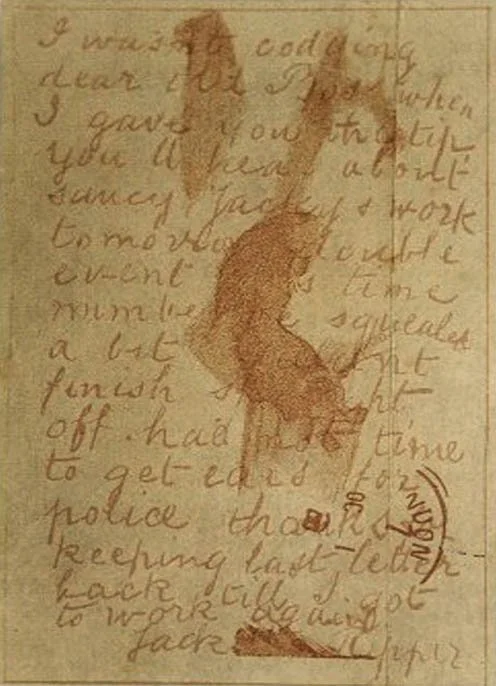 I wasnt codding
dear old Boss when
I gave you the tip
you ll hear about
saucy Jackys work
tomorrow double
event time
number squealed
a bit
finish
off. had not time
to get ears for
police thanks
keeping last letter
back till I got
to work again
Jack Ripper
OC 1